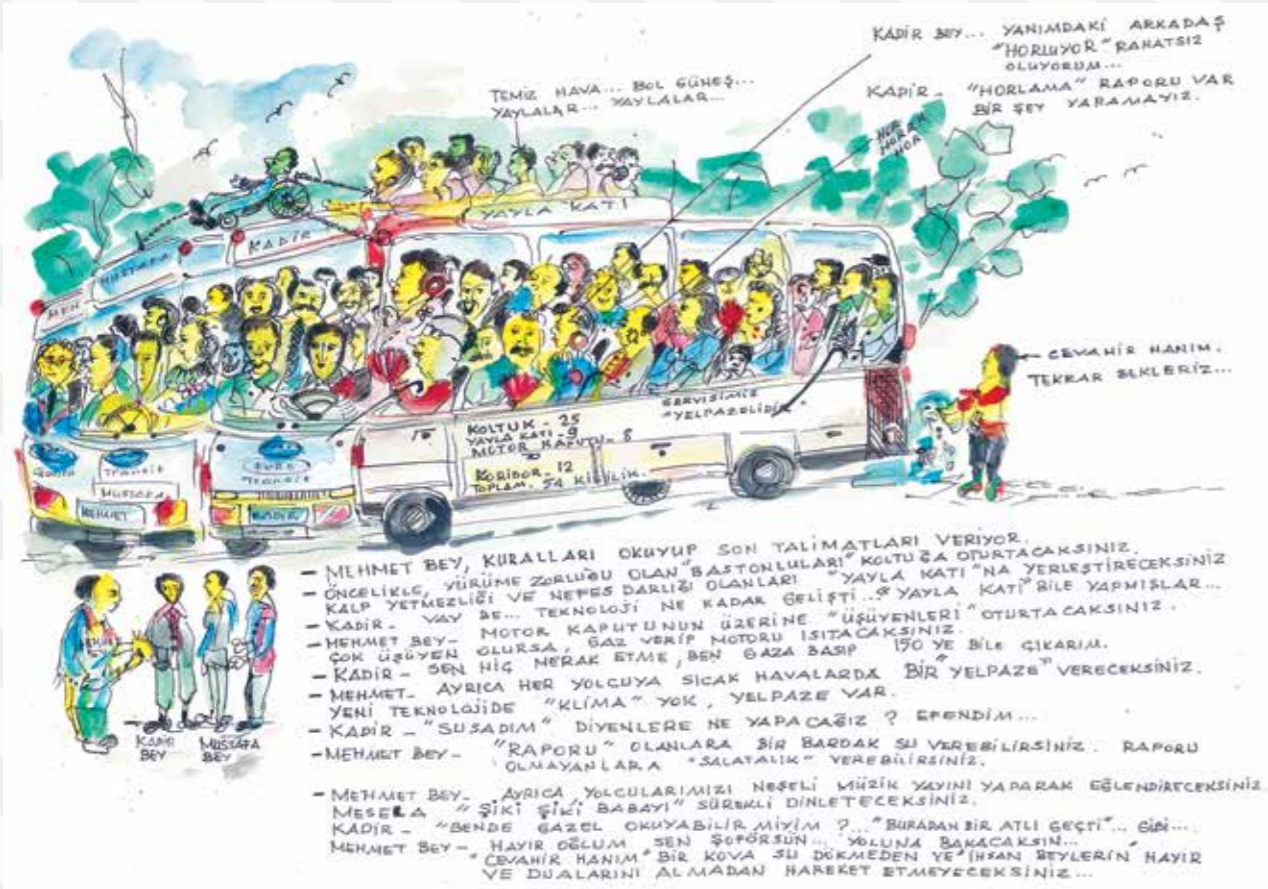 KADİR BEY... YANIMDAKİ ARKADAŞ
"HORLUYOR" RAHATSIZ
OLUYORUM...
KADİR - "HORLAMA" RAPORU VAR
BİR ŞEY YAPAMAYIZ.
TEMİZ HAVA... BOL GÜNEŞ...
YAYLALAR... YAYLALAR...
HOR
HORAK
HOR
YAYLA KATI
KADİR
MUSTAFA
MEN
CEVAHİR HANIM.
TEKRAR BEKLERİZ...
SERVİSİMİZ
"YELPAZELİDİR"
KOLTUK - 25
YAYLA KATI - 9
MOTOR KAPUTU - 8
KORİDOR - 12
TOPLAM. 54 KİŞİLİK.
Transit
MUSTAFA
MEHMET
EURO
Transit
- MEHMET BEY, KURALLARI OKUYUP SON TALİMATLARI VERİYOR.
- ÖNCELİKLE, YÜRÜME ZORLUĞU OLAN "BASTONLULARI" KOLTUĞA OTURTACAKSINIZ.
KALP YETMEZLİĞİ VE NEFES DARLIĞI OLANLARI "YAYLA KATI"NA YERLEŞTİRECEKSİNİZ
- KADİR - VAY BE... TEKNOLOJİ NE KADAR GELİŞTİ..."YAYLA KATI" BİLE YAPMIŞLAR...
- MEHMET BEY - MOTOR KAPUTUNUN ÜZERİNE "ÜŞÜYENLERİ" OTURTACAKSINIZ.
ÇOK ÜŞÜYEN OLURSA, GAZ VERİP MOTORU ISITACAKSINIZ.
- KADİR - SEN HİÇ MERAK ETME, BEN GAZA BASIP 150 YE BİLE ÇIKARIM.
- MEHMET - AYRICA HER YOLCUYA SICAK HAVALARDA BİR "YELPAZE" VERECEKSİNİZ.
YENİ TEKNOLOJİDE "KLİMA" YOK, YELPAZE VAR.
- KADİR - "SUSADIM" DİYENLERE NE YAPACAĞIZ ? EFENDİM...
- MEHMET BEY - "RAPORU" OLANLARA BİR BARDAK SU VEREBİLİRSİNİZ. RAPORU
OLMAYANLARA "SALATALIK" VEREBİLİRSİNİZ.
KADİR
BEY
MUSTAFA
BEY
- MEHMET BEY - AYRICA YOLCULARIMIZI NEŞELİ MÜZİK YAYINI YAPARAK EĞLENDİRECEKSİNİZ.
MESELA "ŞİKİ ŞİKİ BABAYI" SÜREKLİ DİNLETECEKSİNİZ.
KADİR - "BENDE GAZEL OKUYABİLİR MİYİM ?..."BURADAN BİR ATLI GEÇTİ"... GİBİ...
MEHMET BEY - HAYIR OĞLUM SEN ŞOFÖRSÜN... YOLUNA BAKACAKSIN...
"CEVAHİR HANIM" BİR KOVA SU DÖKMEDEN VE "İHSAN BEYLERİN" HAYIR
VE DUALARINI ALMADAN HAREKET ETMEYECEKSİNİZ...